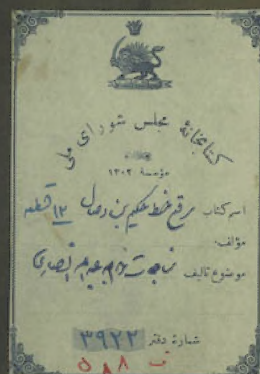 کتابخانهٔ مجلس شورای ملی
مؤسسهٔ ۱۳۰۲
اسم کتاب مرقع خط حکیم بن وصال ۱۲ قطعه
مؤلف
موضوع تألیف مناجات خواجه عبدالله انصاری
شمارهٔ دفتر ۳۹۲۲
۵۸۸